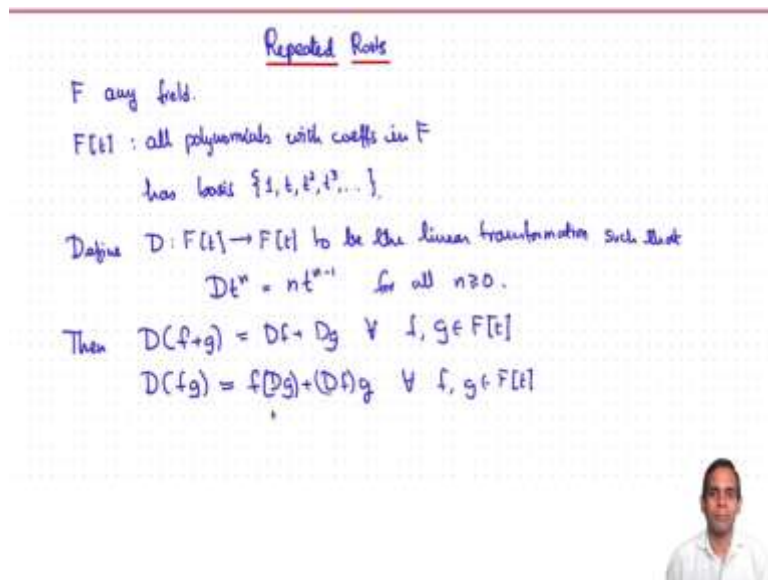 Repeated Roots
F any field.
F[t] : all polynomials with coeffs in F
has basis {1, t, t², t³, ... }.
Define D : F[t] → F[t] to be the linear transformation such that
Dtⁿ = ntⁿ⁻¹ for all n≥0.
Then D(f+g) = Df + Dg ∀ f, g ∈ F[t]
D(fg) = f(Dg)+(Df)g ∀ f, g ∈ F[t]